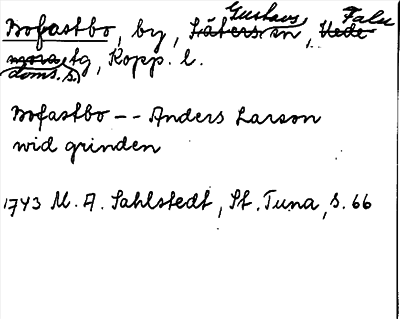 Gustavs Falu
Bofastbo, by, Säters sn, Hede
mora tg, Kopp. l.
doms. s.
Bofastbo -- Anders Larson
wid grinden
1743 M. A. Sahlstedt, St. Tuna, s. 66